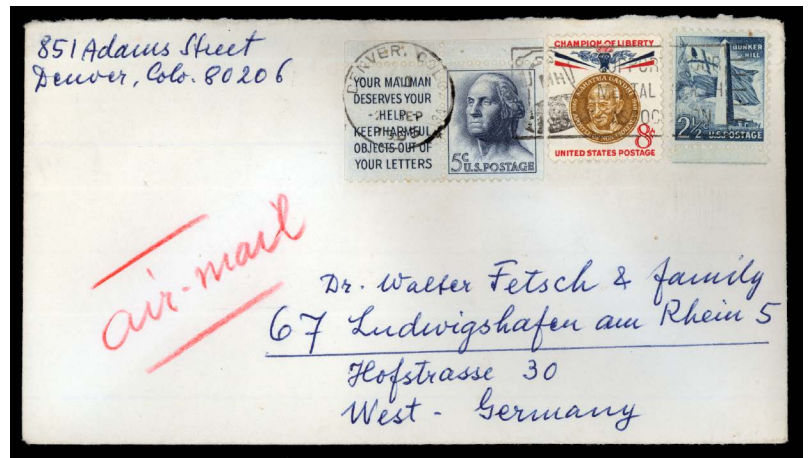 851 Adams Street
Denver, Colo. 80206
DENVER, COLO.
YOUR MAILMAN
DESERVES YOUR
HELP
KEEP HARMFUL
OBJECTS OUT OF
YOUR LETTERS
5c
U.S. POSTAGE
CHAMPION OF LIBERTY
MAHATMA GANDHI
8c
UNITED STATES POSTAGE
BUNKER
HILL
2½c
U.S. POSTAGE
air-mail
Dr. Walter Fetsch & family
67 Ludwigshafen am Rhein 5
Hofstrasse 30
West - Germany